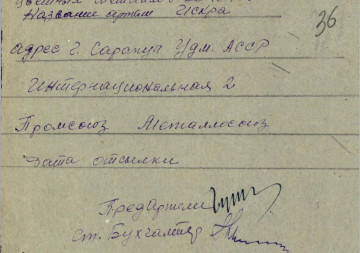 36
Название артели Искра
адрес г. Сарапул Удм. АССР
Интернациональная 2
Промсоюз Металлосоюз
Дата отсылки
Пред. артели
ст. Бухгалтер